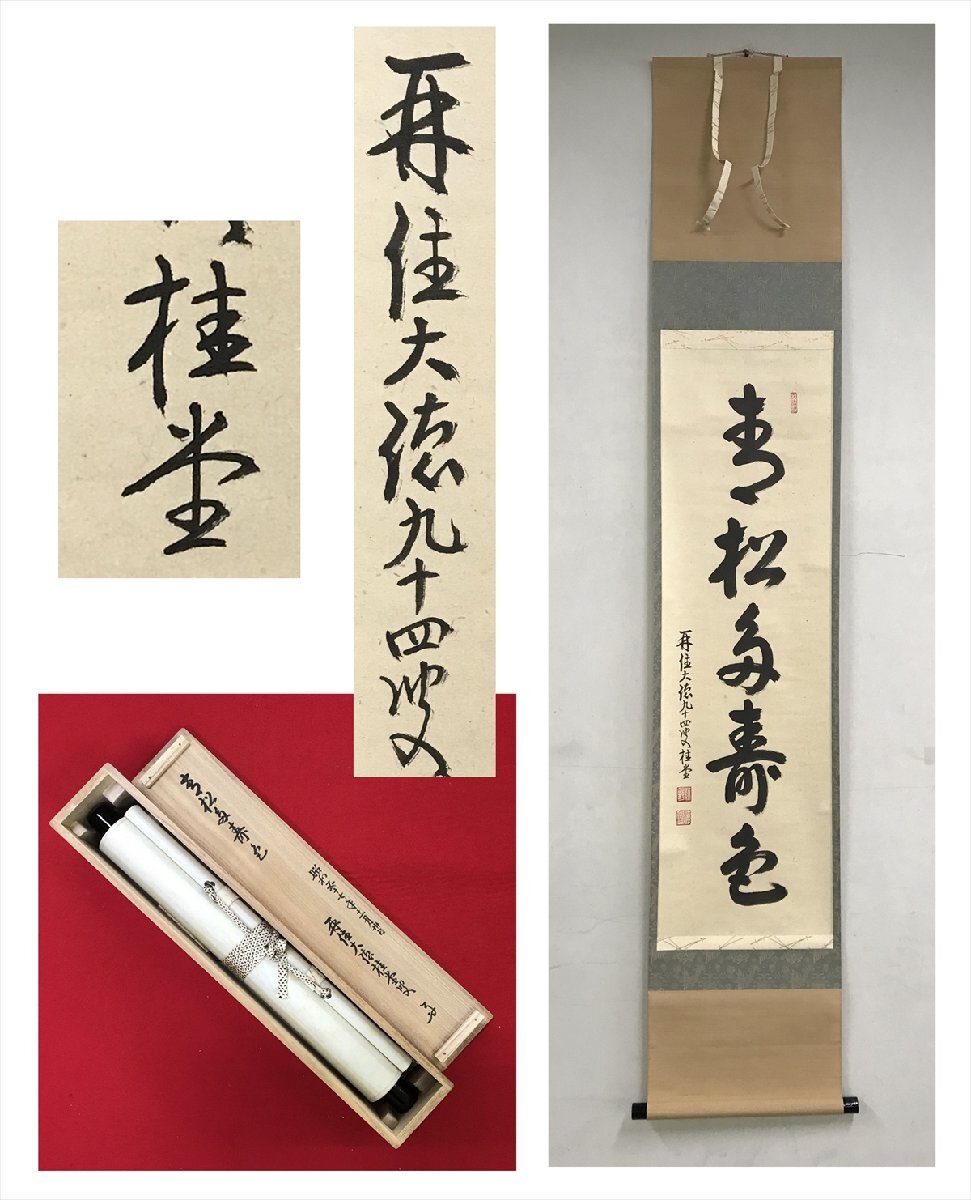 再住大徳九十四叟
桂堂
青松多寿色
再住大徳九十四叟桂堂
青松多寿色
昭和
再住大徳桂堂叟